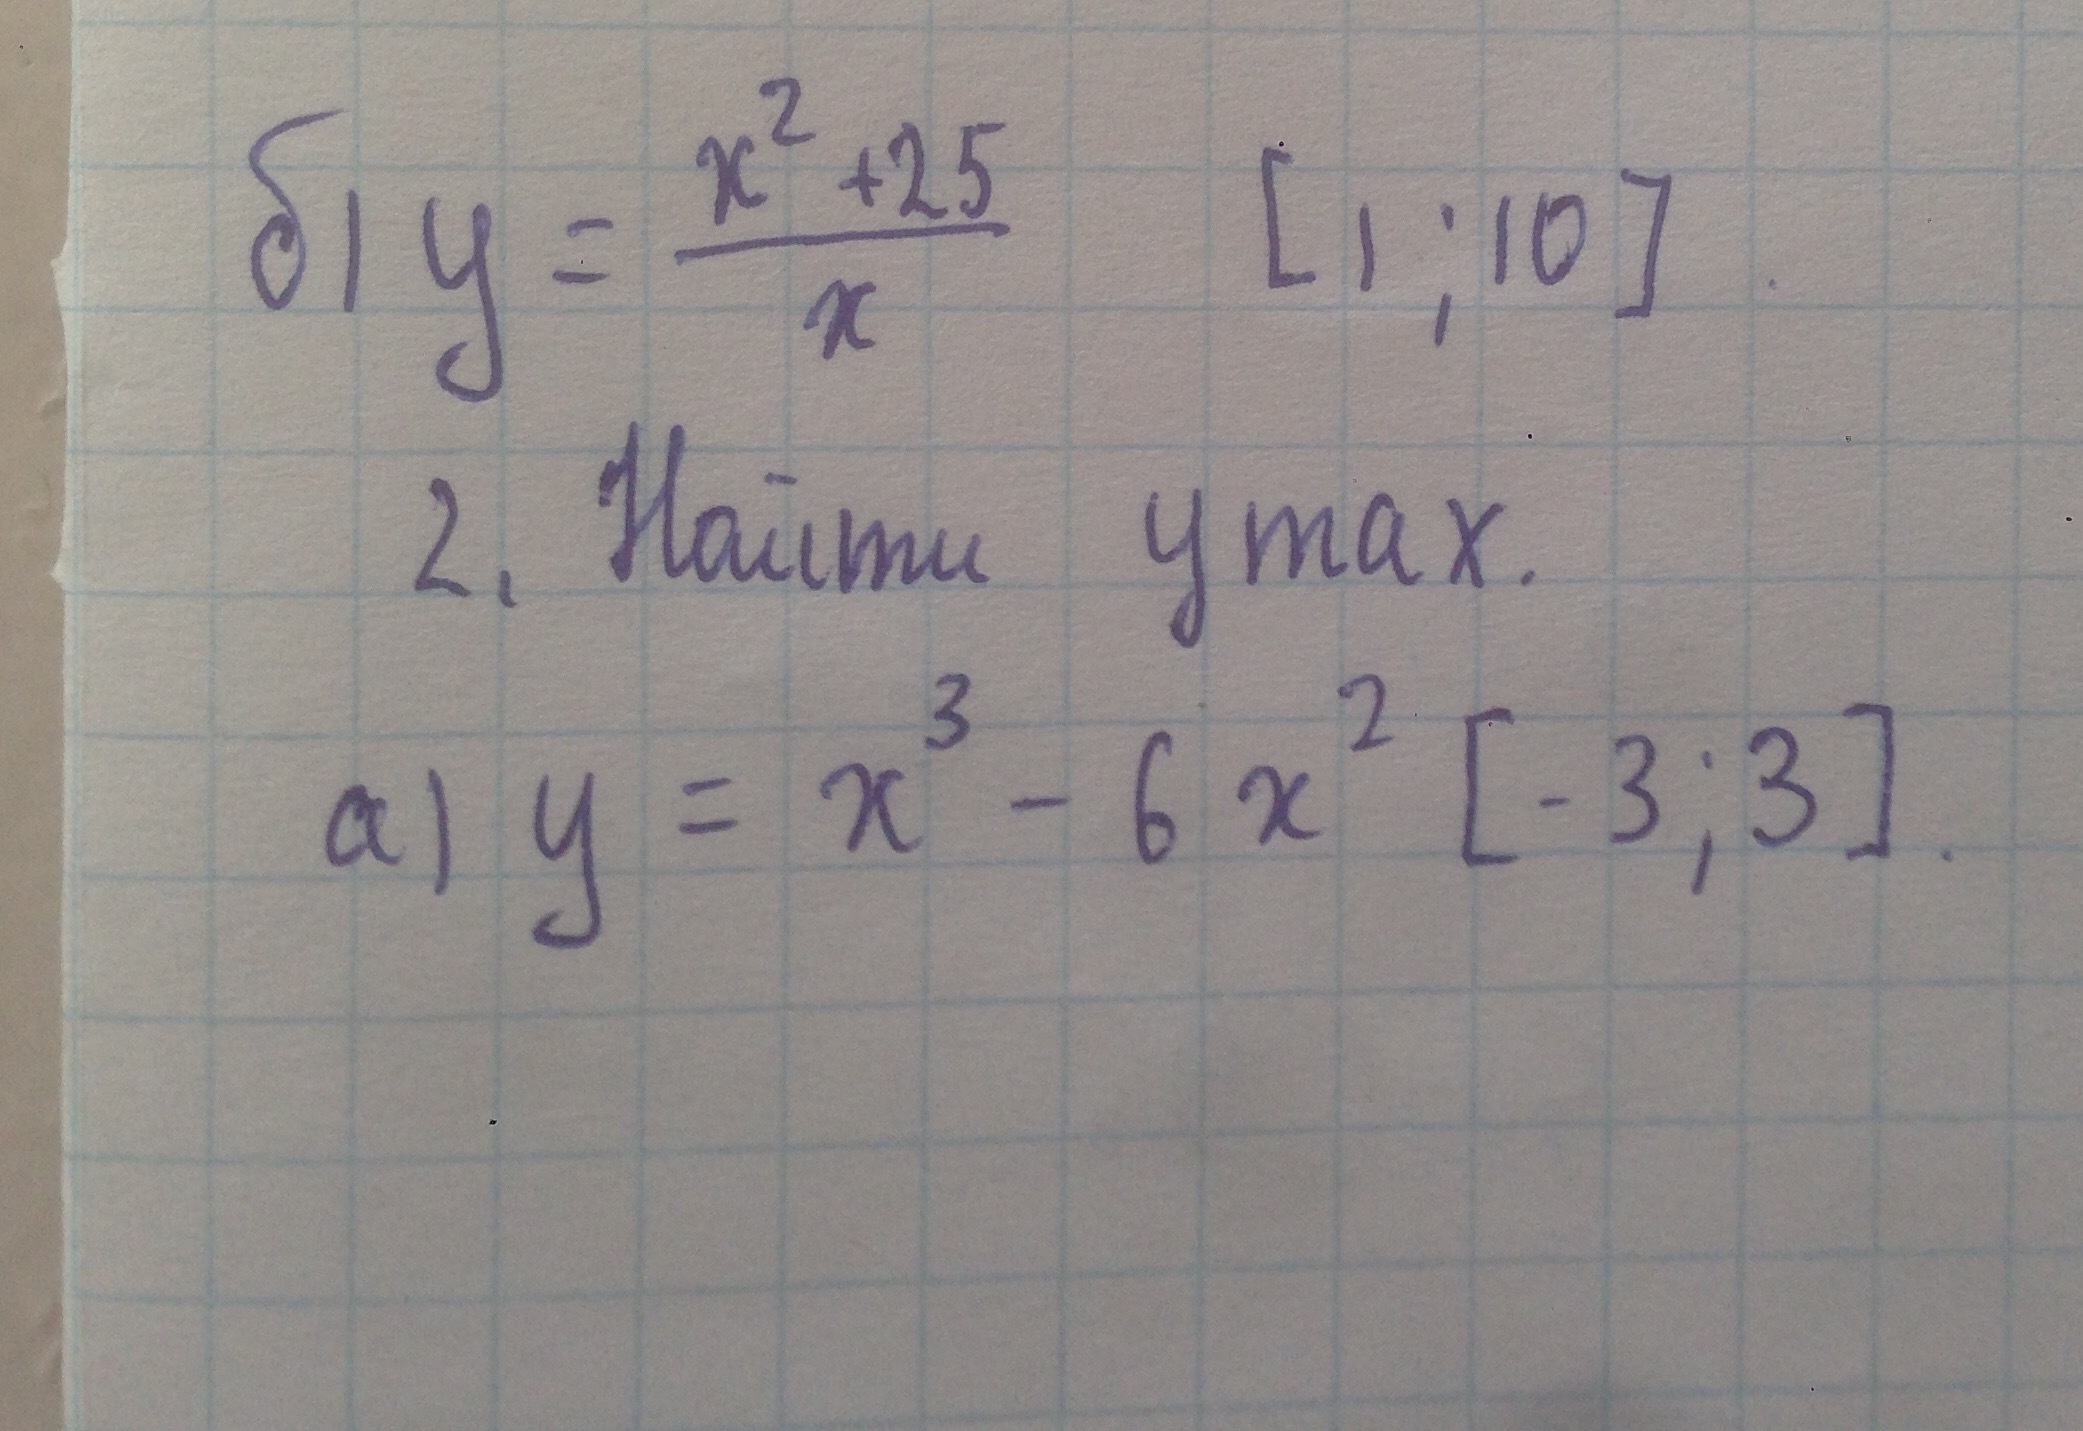 б) y = \frac{x^2+25}{x} [1;10].
2. Найти y max.
а) y = x^3 - 6x^2 [-3;3].